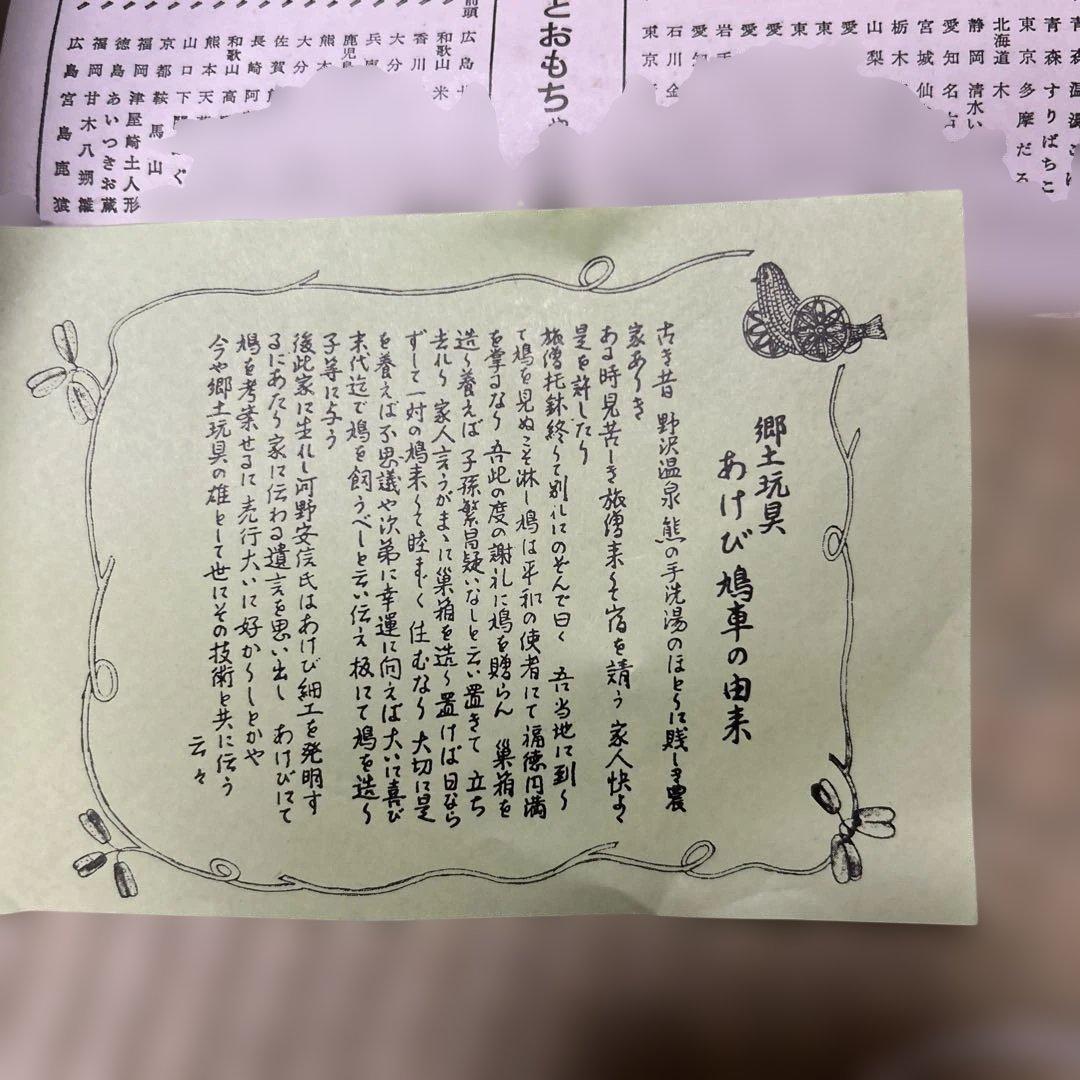 とおもちゃ
青森 温湯こけ
青森 すりばちこ
東京 多摩だる
北海道 木
静岡 清水い
愛知 名古
宮城 仙
栃木
山梨
愛
東
東
愛
愛
岩手
愛知
石川 金
東京
前頭
広島
和歌山 米
香川
大分
兵庫
鹿児島
熊本
大分
佐賀
長崎 阿
和歌山 高
熊本 天
山口 下
京都 鞍馬山
福岡 津屋崎土人形
徳島 あいつきお蔵
福岡 甘木八朔雛
広島 宮島鹿猿
郷土玩具
あけび鳩車の由来
古き昔 野沢温泉 熊の手洗湯のほとりに賎しき農
家ありき
ある時見苦しき旅僧来りて宿を請う 家人快よく
是を許したり
旅僧托鉢終りて別れにのぞんで曰く 吾当地に到り
て鳩を見ぬこそ淋し鳩は平和の使者にて福徳円満
を掌るなり 吾此の度の謝礼に鳩を贈らん 巣箱を
造り養えば 子孫繁昌疑いなしと云い置きて 立ち
去れり 家人言うがまゝに巣箱を造り置けば日なら
ずして一対の鳩来りて睦まじく住むなり 大切に是
を養えば不思議や次第に幸運に向えば大いに喜び
末代迄で鳩を飼うべしと云い伝え板にて鳩を造り
子等に与う
後此家に生れし河野安信氏はあけび細工を発明す
るにあたり家に伝わる遺言を思い出し あけびにて
鳩を考案せるに売行大いに好かりしとかや
今や郷土玩具の雄として世にその技術と共に伝う
云々